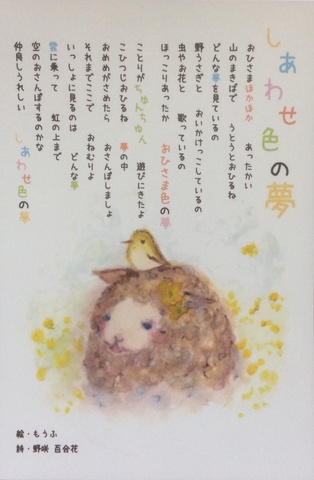 しあわせ色の夢
おひさまほかほか　あったかい
山のまきばで　うとうとおひるね
どんな夢を見ているの
野うさぎと　おいかけっこしているの
虫やお花と　歌っているの
ほっこりあったか　おひさま色の夢
ことりがちゅんちゅん　遊びにきたよ
こひつじおひるね　夢の中
おめめがさめたら　おさんぽしましょ
それまでここで　おねむりよ
いっしょに見るのは　どんな夢
雲に乗って　虹の上まで
空のおさんぽするのかな
仲良しうれしい　しあわせ色の夢
絵・もうふ
詩・野咲 百合花